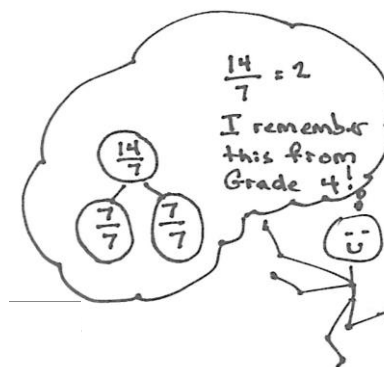 14/7 = 2
I remember
this from
Grade 4!
14/7
7/7 7/7